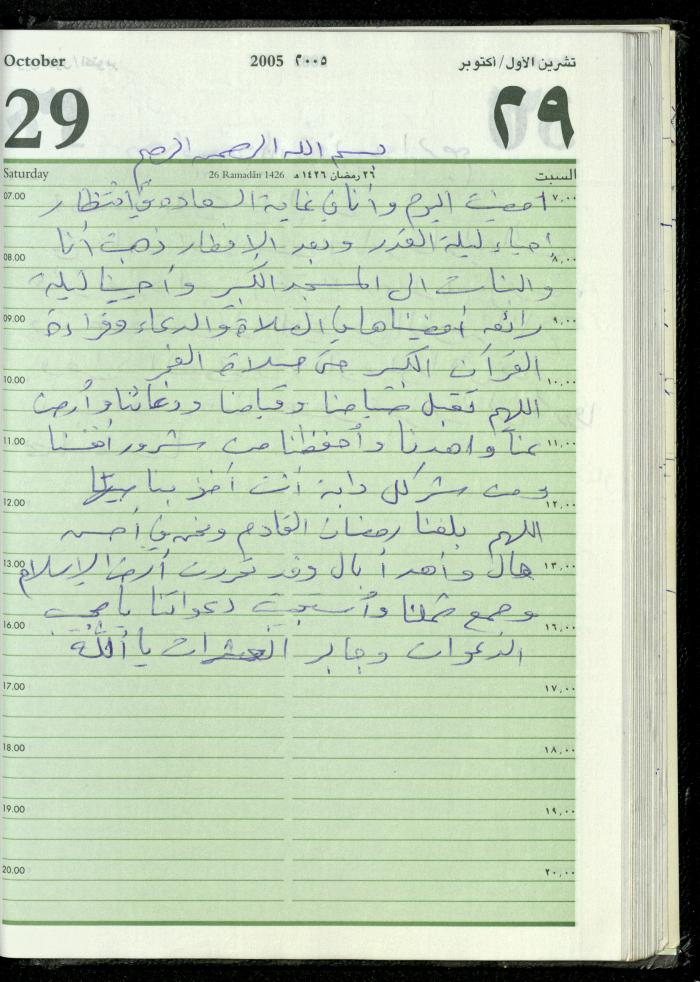 October 2005 ٢٠٠٥ تشرين الأول/أكتوبر
29 ٢٩
بسم الله الرحمن الرحيم
Saturday 26 Ramadân 1426 ٢٦ رمضان ١٤٢٦هـ السبت
07.00 ٧,٠٠
أمضيت اليوم وأنا في غاية السعادة في انتظار
إحياء ليلة القدر وبعد الإفطار ذهبت أنا
08.00 ٨,٠٠
والبنات الى المسجد الكبير وأحيينا ليلة
09.00 ٩,٠٠
رائعه أمضيناها في الصلاة والدعاء وقراءة
القرآن الكريم حتى صلاة الفجر
10.00 ١٠,٠٠
اللهم تقبل صيامنا وقيامنا ودعائنا وأرض
11.00 ١١,٠٠
عنا واهدنا وأحفظنا من شرور أنفسنا
ومن شر كل دابة أنت آخذ بناصيتها
12.00 ١٢,٠٠
اللهم بلغنا رمضان القادم ونحن في أحسن
13.00 ١٣,٠٠
حال وأهدأ بال وقد تحررت أرض الإسلام
وجمع شملنا وأستجيبت دعواتنا يا مجيب
16.00 ١٦,٠٠
الدعوات وجابر العثرات يا ألله
17.00 ١٧,٠٠
18.00 ١٨,٠٠
19.00 ١٩,٠٠
20.00 ٢٠,٠٠